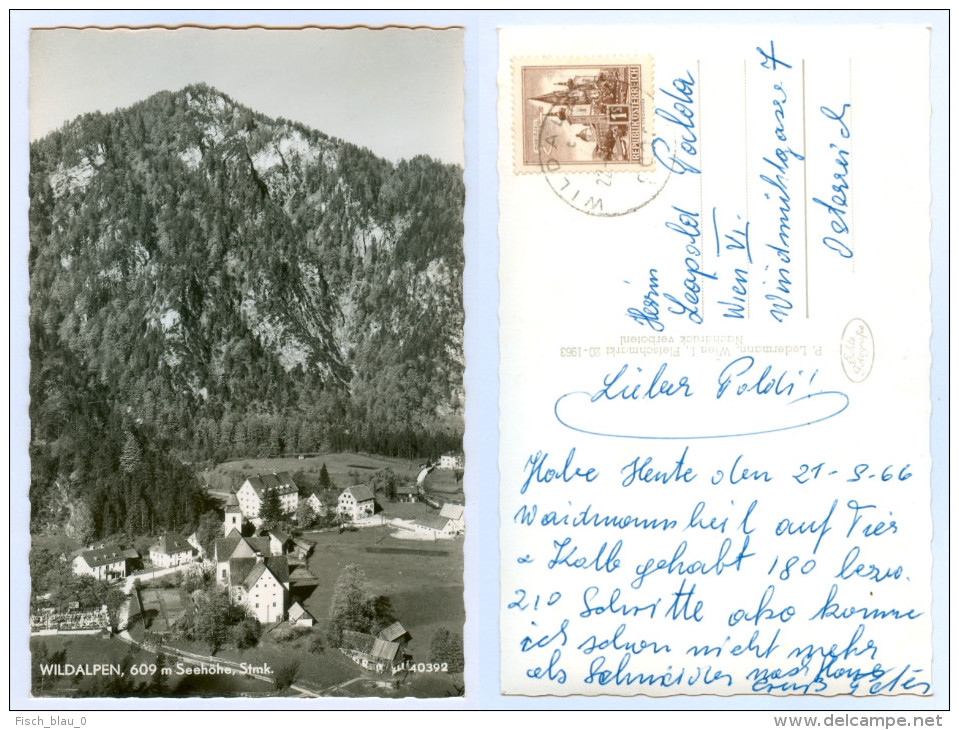 WILDALPEN, 609 m Seehöhe, Stmk.
40392
REPUBLIK ÖSTERREICH
WILDA
22
Herrn
Leopold Palda
Wien VI.
Windmühlgasse 7
Österreich
P. Ledermann, Wien I., Fleischmarkt 20-1963
Nachdruck verboten!
Echte
Lieber Poldi!
Habe Heute den 21-9-66
Waidmannsheil auf Tier
& Kalb gehabt 180 bezw.
210 Schritte also komme
ich schon nicht mehr
als Schneider nach Hause
Gruß Peter
Fisch_blau_0
www.delcampe.net